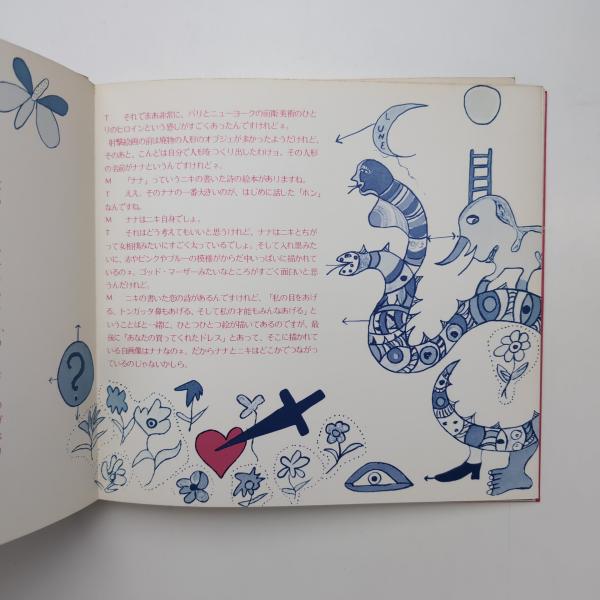 T　それでまあ非常に、パリとニューヨークの前衛美術のひと
りのヒロインという感じがすごくあったんですけれどネ。
射撃絵画の前は廃物の人形のオブジェが多かったようだけれど、
そのあと、こんどは自分で人形をつくり出したわけョ。その人形
の名前がナナというんですけれどネ。
M　「ナナ」っていうニキの書いた詩の絵本がありますね。
T　ええ、そのナナの一番大きいのが、はじめに話した「ホン」
なんですね。
M　ナナはニキ自身でしょ。
T　それはどう考えてもいいと思うけれど、ナナはニキとちが
って女相撲みたいにすごく太っているでしょ。そして入れ墨みた
いに、赤やピンクやブルーの模様がからだ中いっぱいに描かれて
いるのネ。ゴッド・マーザーみたいなところがすごく面白いと思
うんだけれど。
M　ニキの書いた恋の詩があるんですけれど、「私の目をあげ
る、トンガッタ鼻もあげる、そして私の才能もみんなあげる」と
いうことばと一緒に、ひとつひとつ絵が描いてあるのですが、最
後に「あなたの買ってくれたドレス」とあって、そこに描かれて
いる自画像はナナなのネ。だからナナとニキはどこかでつながっ
ているのじゃないかしら。
LUNE
?